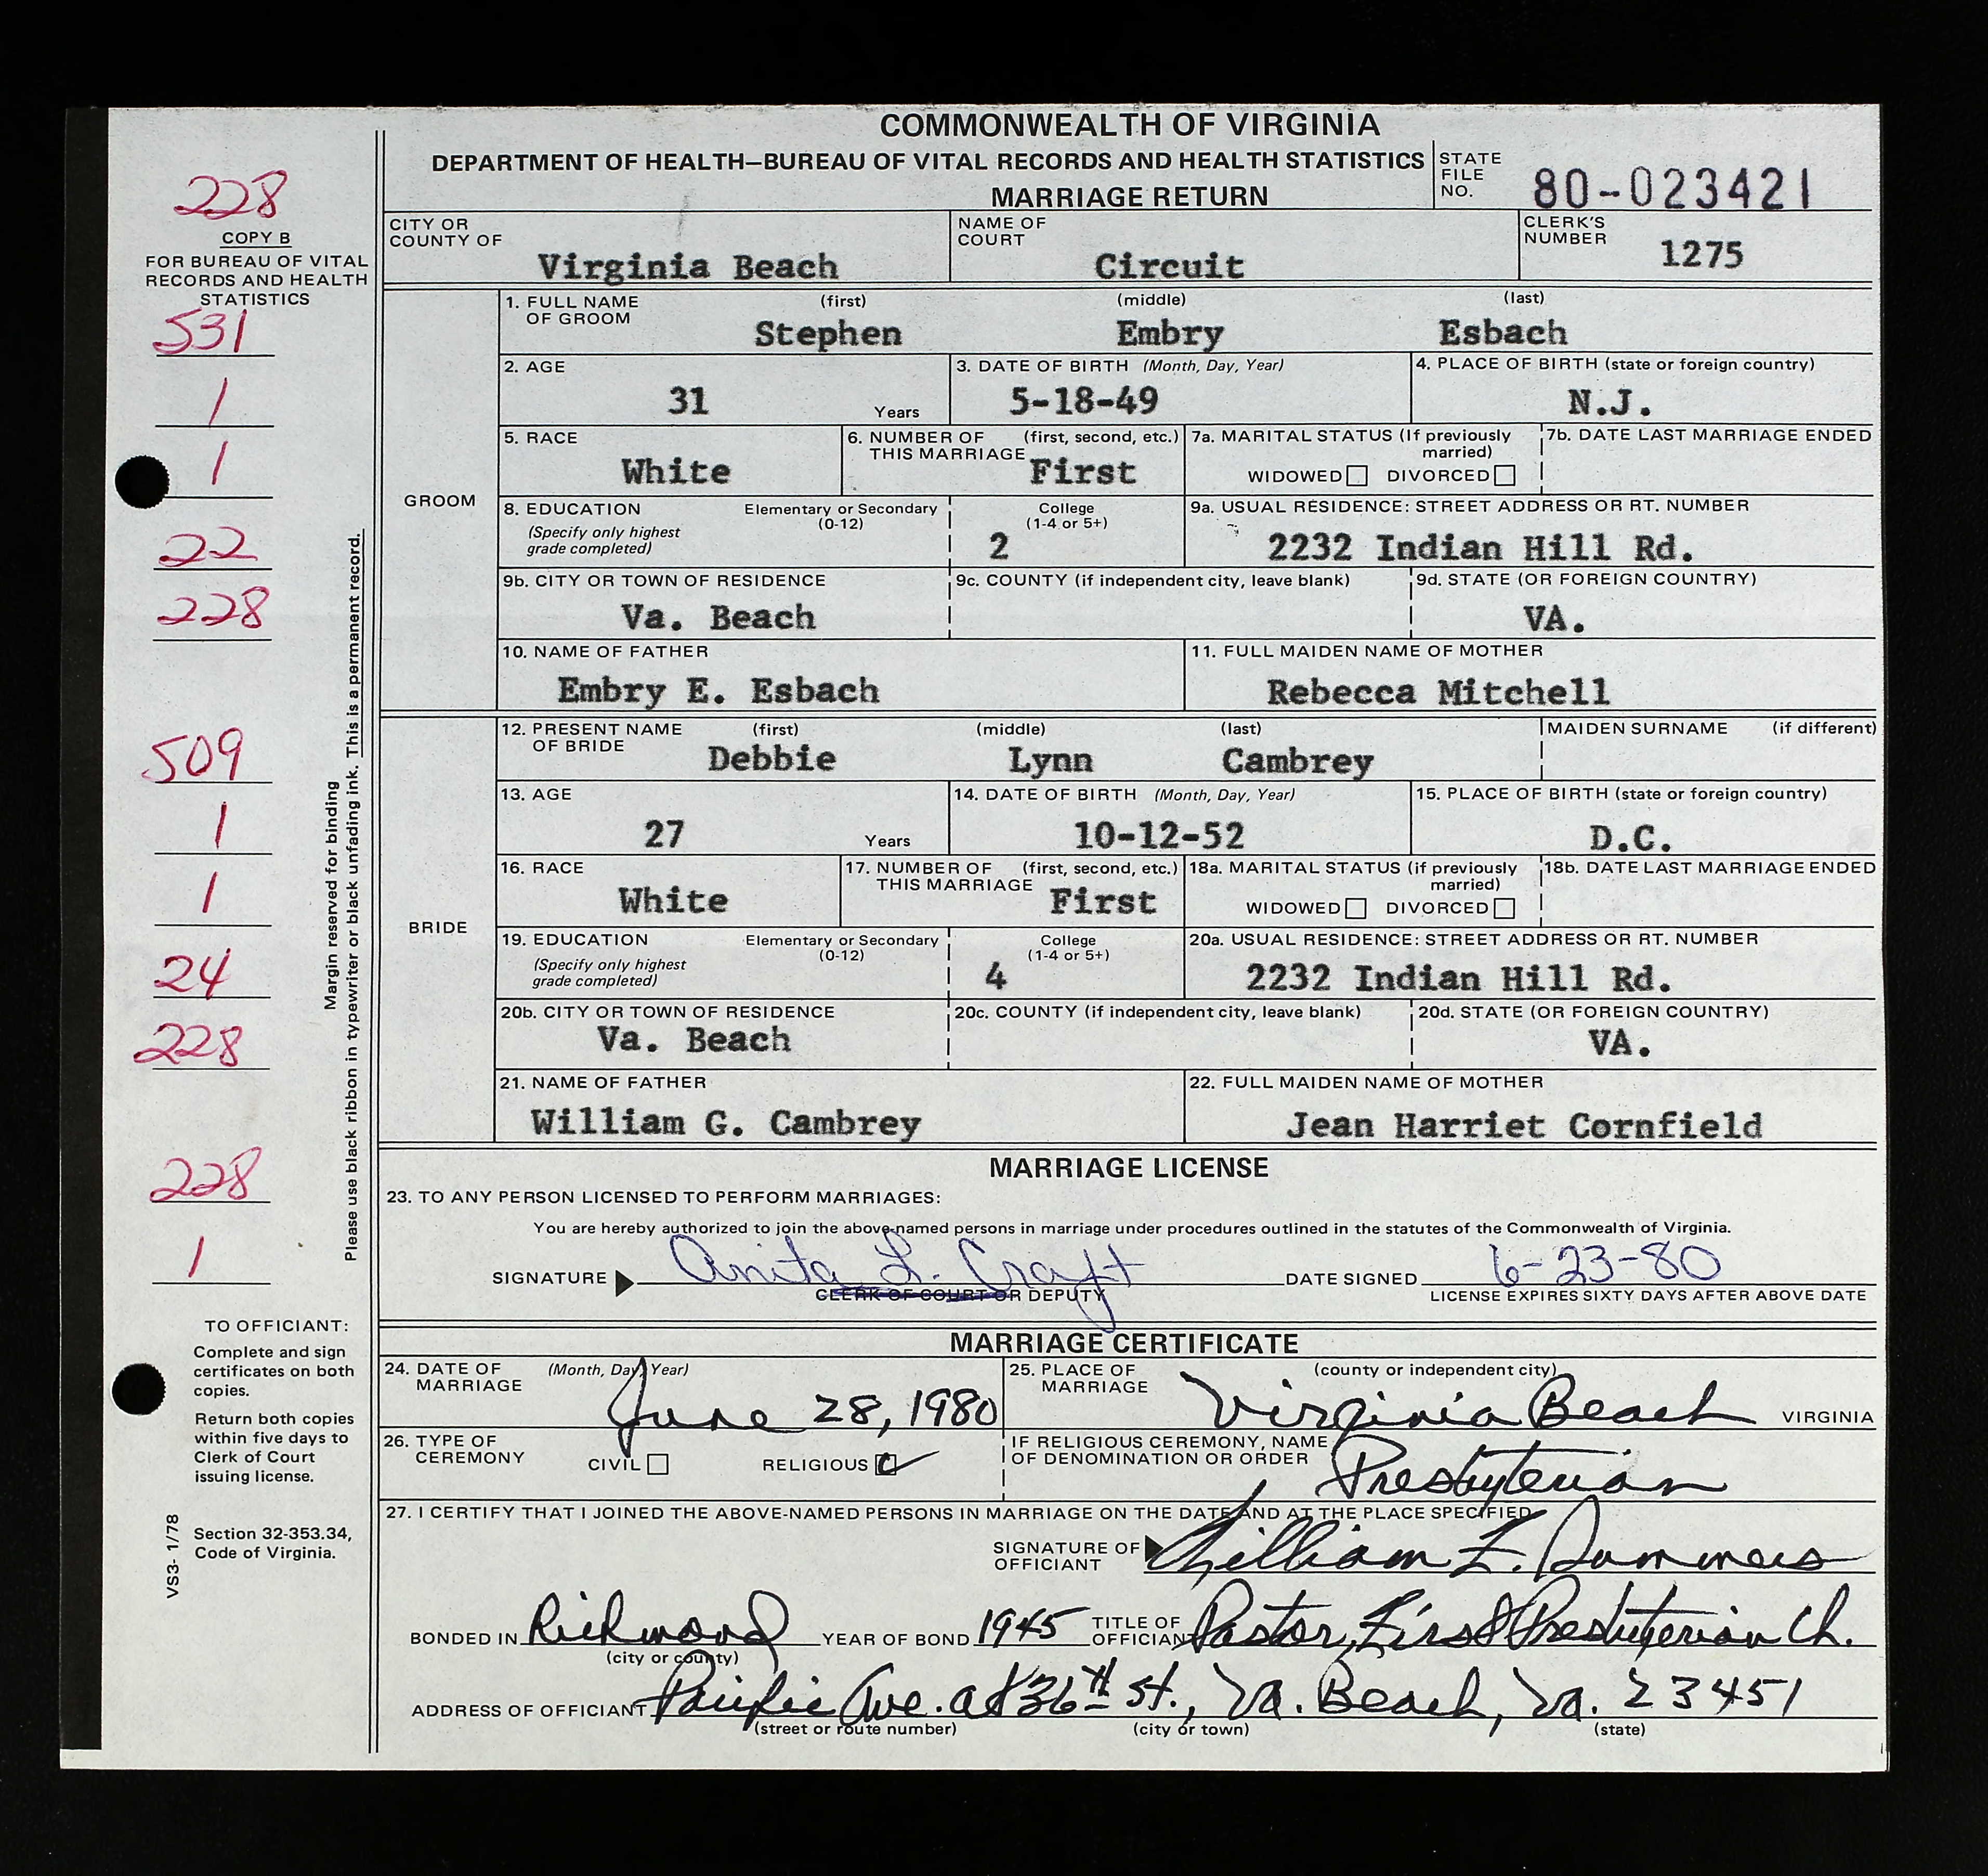 COMMONWEALTH OF VIRGINIA
DEPARTMENT OF HEALTH—BUREAU OF VITAL RECORDS AND HEALTH STATISTICS
MARRIAGE RETURN
STATE FILE NO. 80-023421
228
COPY B
FOR BUREAU OF VITAL
RECORDS AND HEALTH
STATISTICS
531
1
1
22
228
509
1
1
24
228
228
1
Margin reserved for binding
Please use black ribbon in typewriter or black unfading ink. This is a permanent record.
TO OFFICIANT:
Complete and sign
certificates on both
copies.
Return both copies
within five days to
Clerk of Court
issuing license.
Section 32-353.34,
Code of Virginia.
VS3- 1/78
CITY OR COUNTY OF Virginia Beach
NAME OF COURT Circuit
CLERK'S NUMBER 1275
GROOM
1. FULL NAME OF GROOM (first) (middle) (last)
Stephen Embry Esbach
2. AGE 31 Years
3. DATE OF BIRTH (Month, Day, Year) 5-18-49
4. PLACE OF BIRTH (state or foreign country) N.J.
5. RACE White
6. NUMBER OF THIS MARRIAGE (first, second, etc.) First
7a. MARITAL STATUS (If previously married) WIDOWED DIVORCED
7b. DATE LAST MARRIAGE ENDED
8. EDUCATION (Specify only highest grade completed) Elementary or Secondary (0-12) College (1-4 or 5+) 2
9a. USUAL RESIDENCE: STREET ADDRESS OR RT. NUMBER
2232 Indian Hill Rd.
9b. CITY OR TOWN OF RESIDENCE Va. Beach
9c. COUNTY (if independent city, leave blank)
9d. STATE (OR FOREIGN COUNTRY) VA.
10. NAME OF FATHER Embry E. Esbach
11. FULL MAIDEN NAME OF MOTHER Rebecca Mitchell
BRIDE
12. PRESENT NAME OF BRIDE (first) (middle) (last) MAIDEN SURNAME (if different)
Debbie Lynn Cambrey
13. AGE 27 Years
14. DATE OF BIRTH (Month, Day, Year) 10-12-52
15. PLACE OF BIRTH (state or foreign country) D.C.
16. RACE White
17. NUMBER OF THIS MARRIAGE (first, second, etc.) First
18a. MARITAL STATUS (if previously married) WIDOWED DIVORCED
18b. DATE LAST MARRIAGE ENDED
19. EDUCATION (Specify only highest grade completed) Elementary or Secondary (0-12) College (1-4 or 5+) 4
20a. USUAL RESIDENCE: STREET ADDRESS OR RT. NUMBER
2232 Indian Hill Rd.
20b. CITY OR TOWN OF RESIDENCE Va. Beach
20c. COUNTY (if independent city, leave blank)
20d. STATE (OR FOREIGN COUNTRY) VA.
21. NAME OF FATHER William G. Cambrey
22. FULL MAIDEN NAME OF MOTHER Jean Harriet Cornfield
MARRIAGE LICENSE
23. TO ANY PERSON LICENSED TO PERFORM MARRIAGES:
You are hereby authorized to join the above-named persons in marriage under procedures outlined in the statutes of the Commonwealth of Virginia.
SIGNATURE Anita L. Craft DATE SIGNED 6-23-80
CLERK OF COURT OR DEPUTY LICENSE EXPIRES SIXTY DAYS AFTER ABOVE DATE
MARRIAGE CERTIFICATE
24. DATE OF MARRIAGE (Month, Day, Year) June 28, 1980
25. PLACE OF MARRIAGE (county or independent city) Virginia Beach VIRGINIA
26. TYPE OF CEREMONY CIVIL RELIGIOUS
IF RELIGIOUS CEREMONY, NAME OF DENOMINATION OR ORDER Presbyterian
27. I CERTIFY THAT I JOINED THE ABOVE-NAMED PERSONS IN MARRIAGE ON THE DATE AND AT THE PLACE SPECIFIED
SIGNATURE OF OFFICIANT William F. Summers
BONDED IN Richmond YEAR OF BOND 1945 TITLE OF OFFICIANT Pastor, First Presbyterian Ch.
(city or county)
ADDRESS OF OFFICIANT Pacific Ave. at 36th St., Va. Beach, Va. 23451
(street or route number) (city or town) (state)